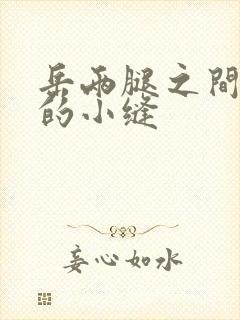 岳两腿之間
的小缝
妄心如水